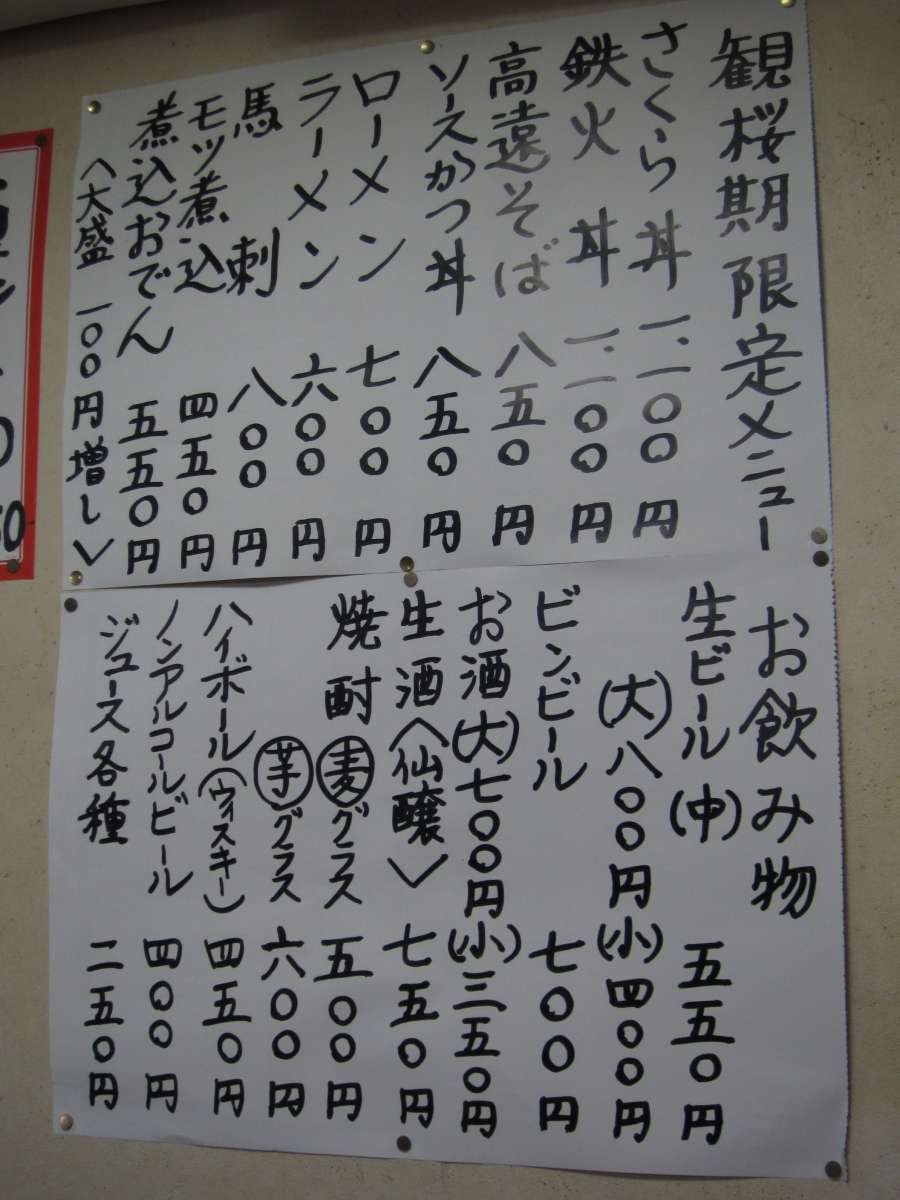 観桜期限定メニュー
さくら丼 一、一〇〇円
鉄火丼 一、一〇〇円
高遠そば 八五〇円
ソースかつ丼 八五〇円
ローメン 七〇〇円
ラーメン 六〇〇円
馬刺 八〇〇円
モツ煮込 四五〇円
煮込おでん 五五〇円
〈大盛 一〇〇円増し〉
お飲み物
生ビール(中) 五五〇円
(大)八〇〇円 (小)四〇〇円
ビンビール 七〇〇円
お酒(大)七〇〇円 (小)三五〇円
生酒〈仙醸〉 七五〇円
焼酎 麦グラス 五〇〇円
芋グラス 六〇〇円
ハイボール(ウィスキー) 四五〇円
ノンアルコールビール 四〇〇円
ジュース各種 二五〇円